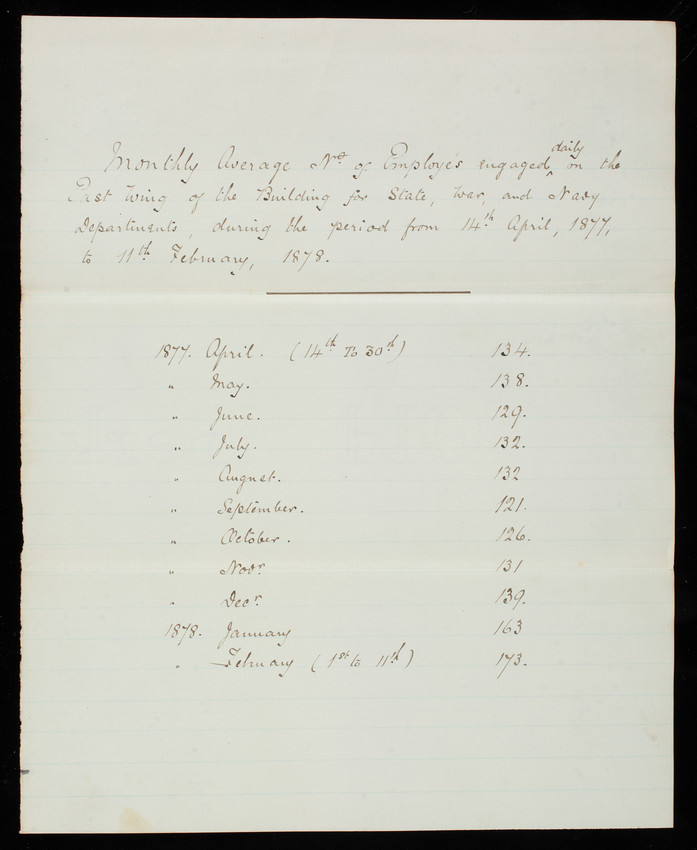 daily
Monthly Average Nos of Employe's engaged ^ on the
East Wing of the Building for State, War, and Navy
Departments, during the period from 14th April, 1877,
to 11th February, 1878.
1877. April. (14th to 30th) 134.
" May. 138.
" June. 129.
" July. 132.
" August. 132
" September. 121.
" October. 126.
" Novr 131
" Decr 139.
1878. January 163
" February (1st to 11th) 173.